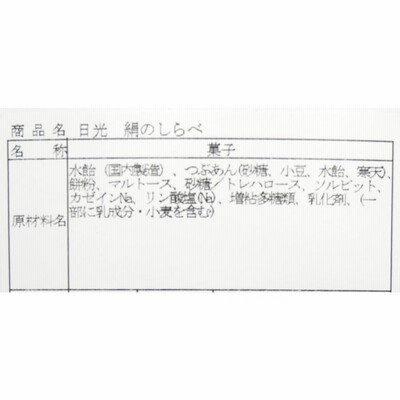 商品名 日光 絹のしらべ
名称 菓子
水飴(国内製造)、つぶあん(砂糖、小豆、水飴、寒天)、
餅粉、マルトース、砂糖/トレハロース、ソルビット、
原材料名 カゼインNa、リン酸塩(Na)、増粘多糖類、乳化剤、(一
部に乳成分・小麦を含む)